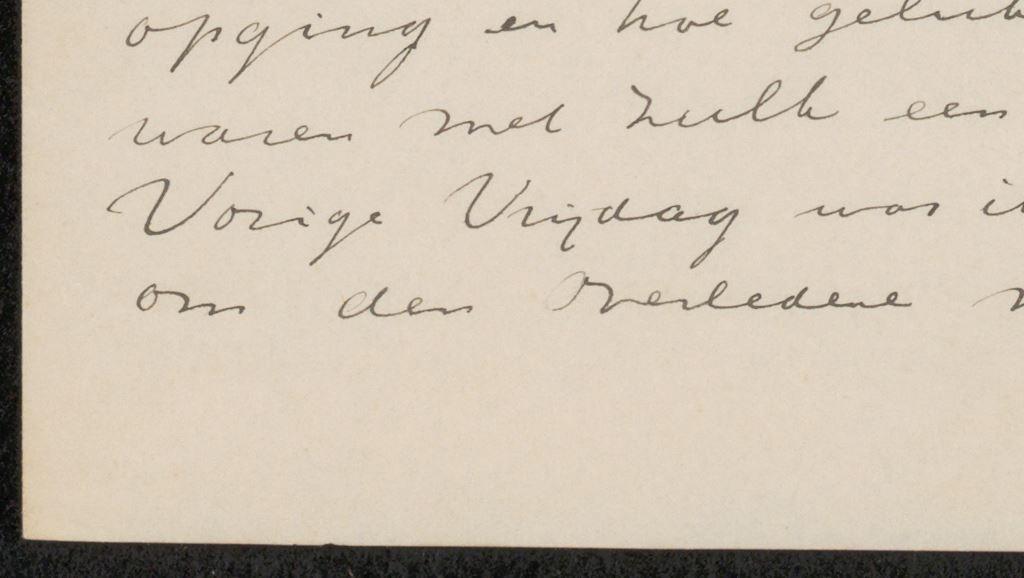 opging en hoe geluk
waren met zulk een
Vorige Vrijdag was i
om den Overledene